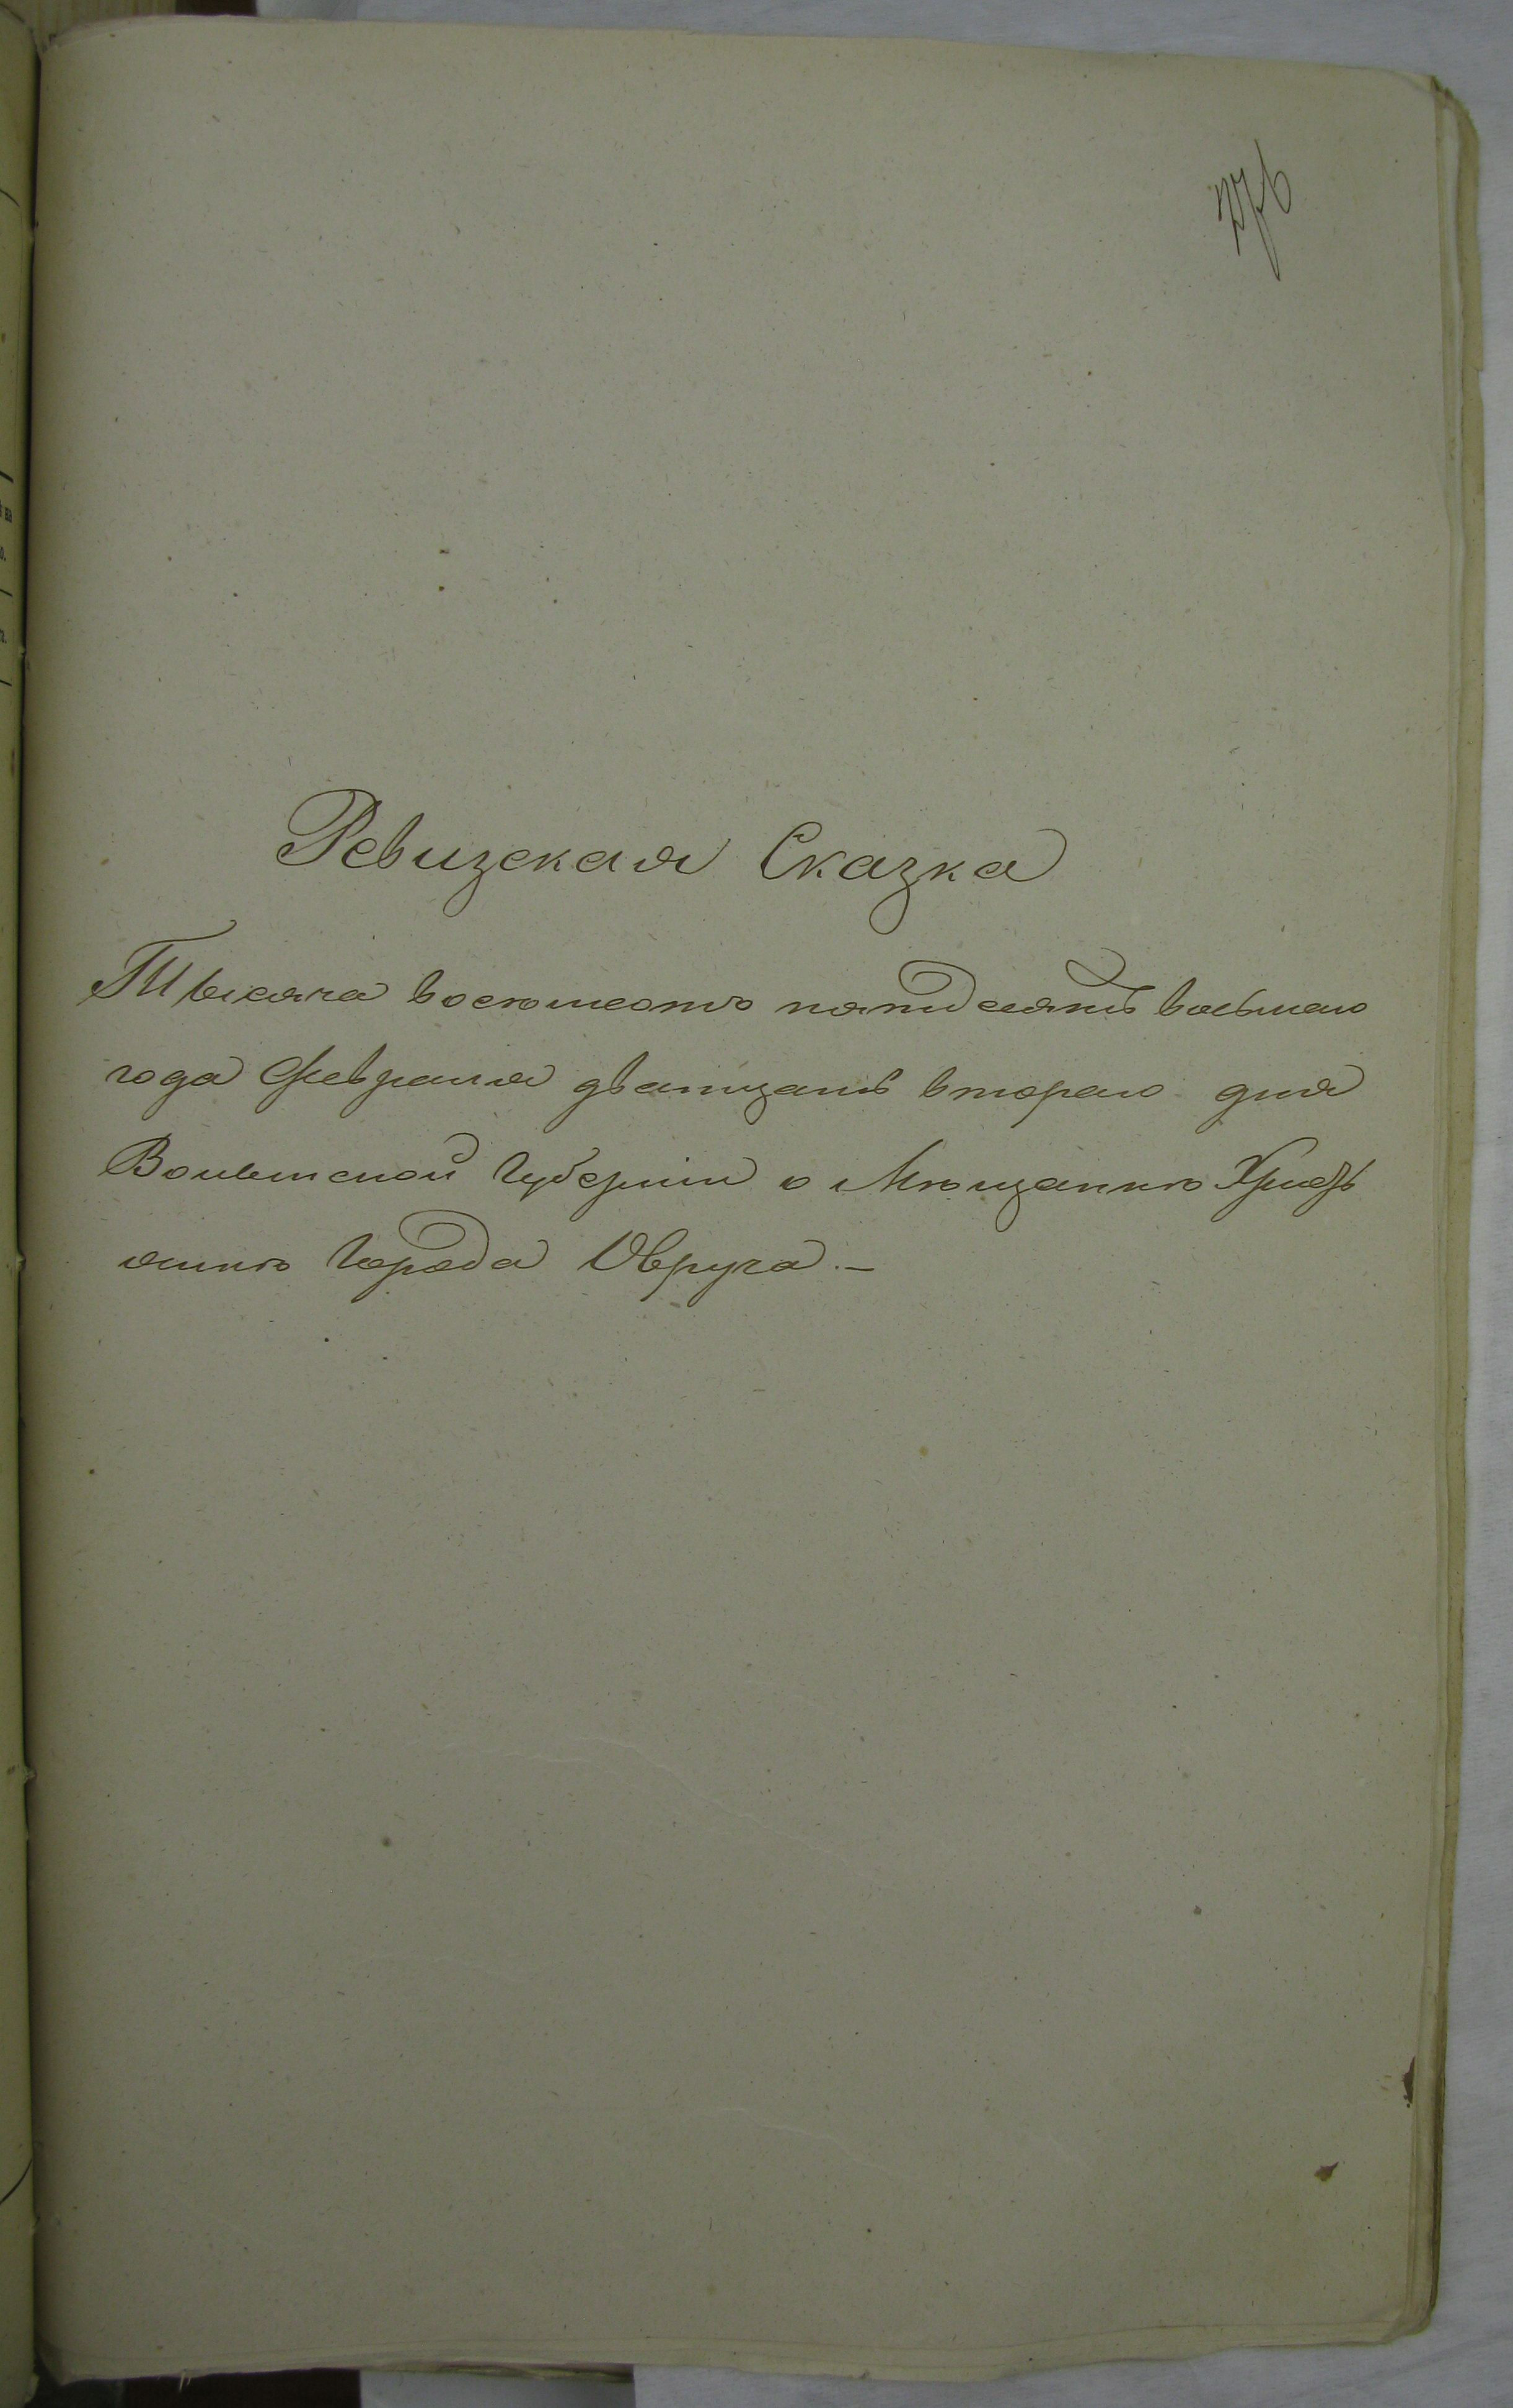 276
Ревизская Сказка
Тысяча восемьсотъ пятдесятъ восьмаго
года Февраля дватцать втораго дня
Волынской Губерніи о Мещанине Христ
янине Города Овруча.—